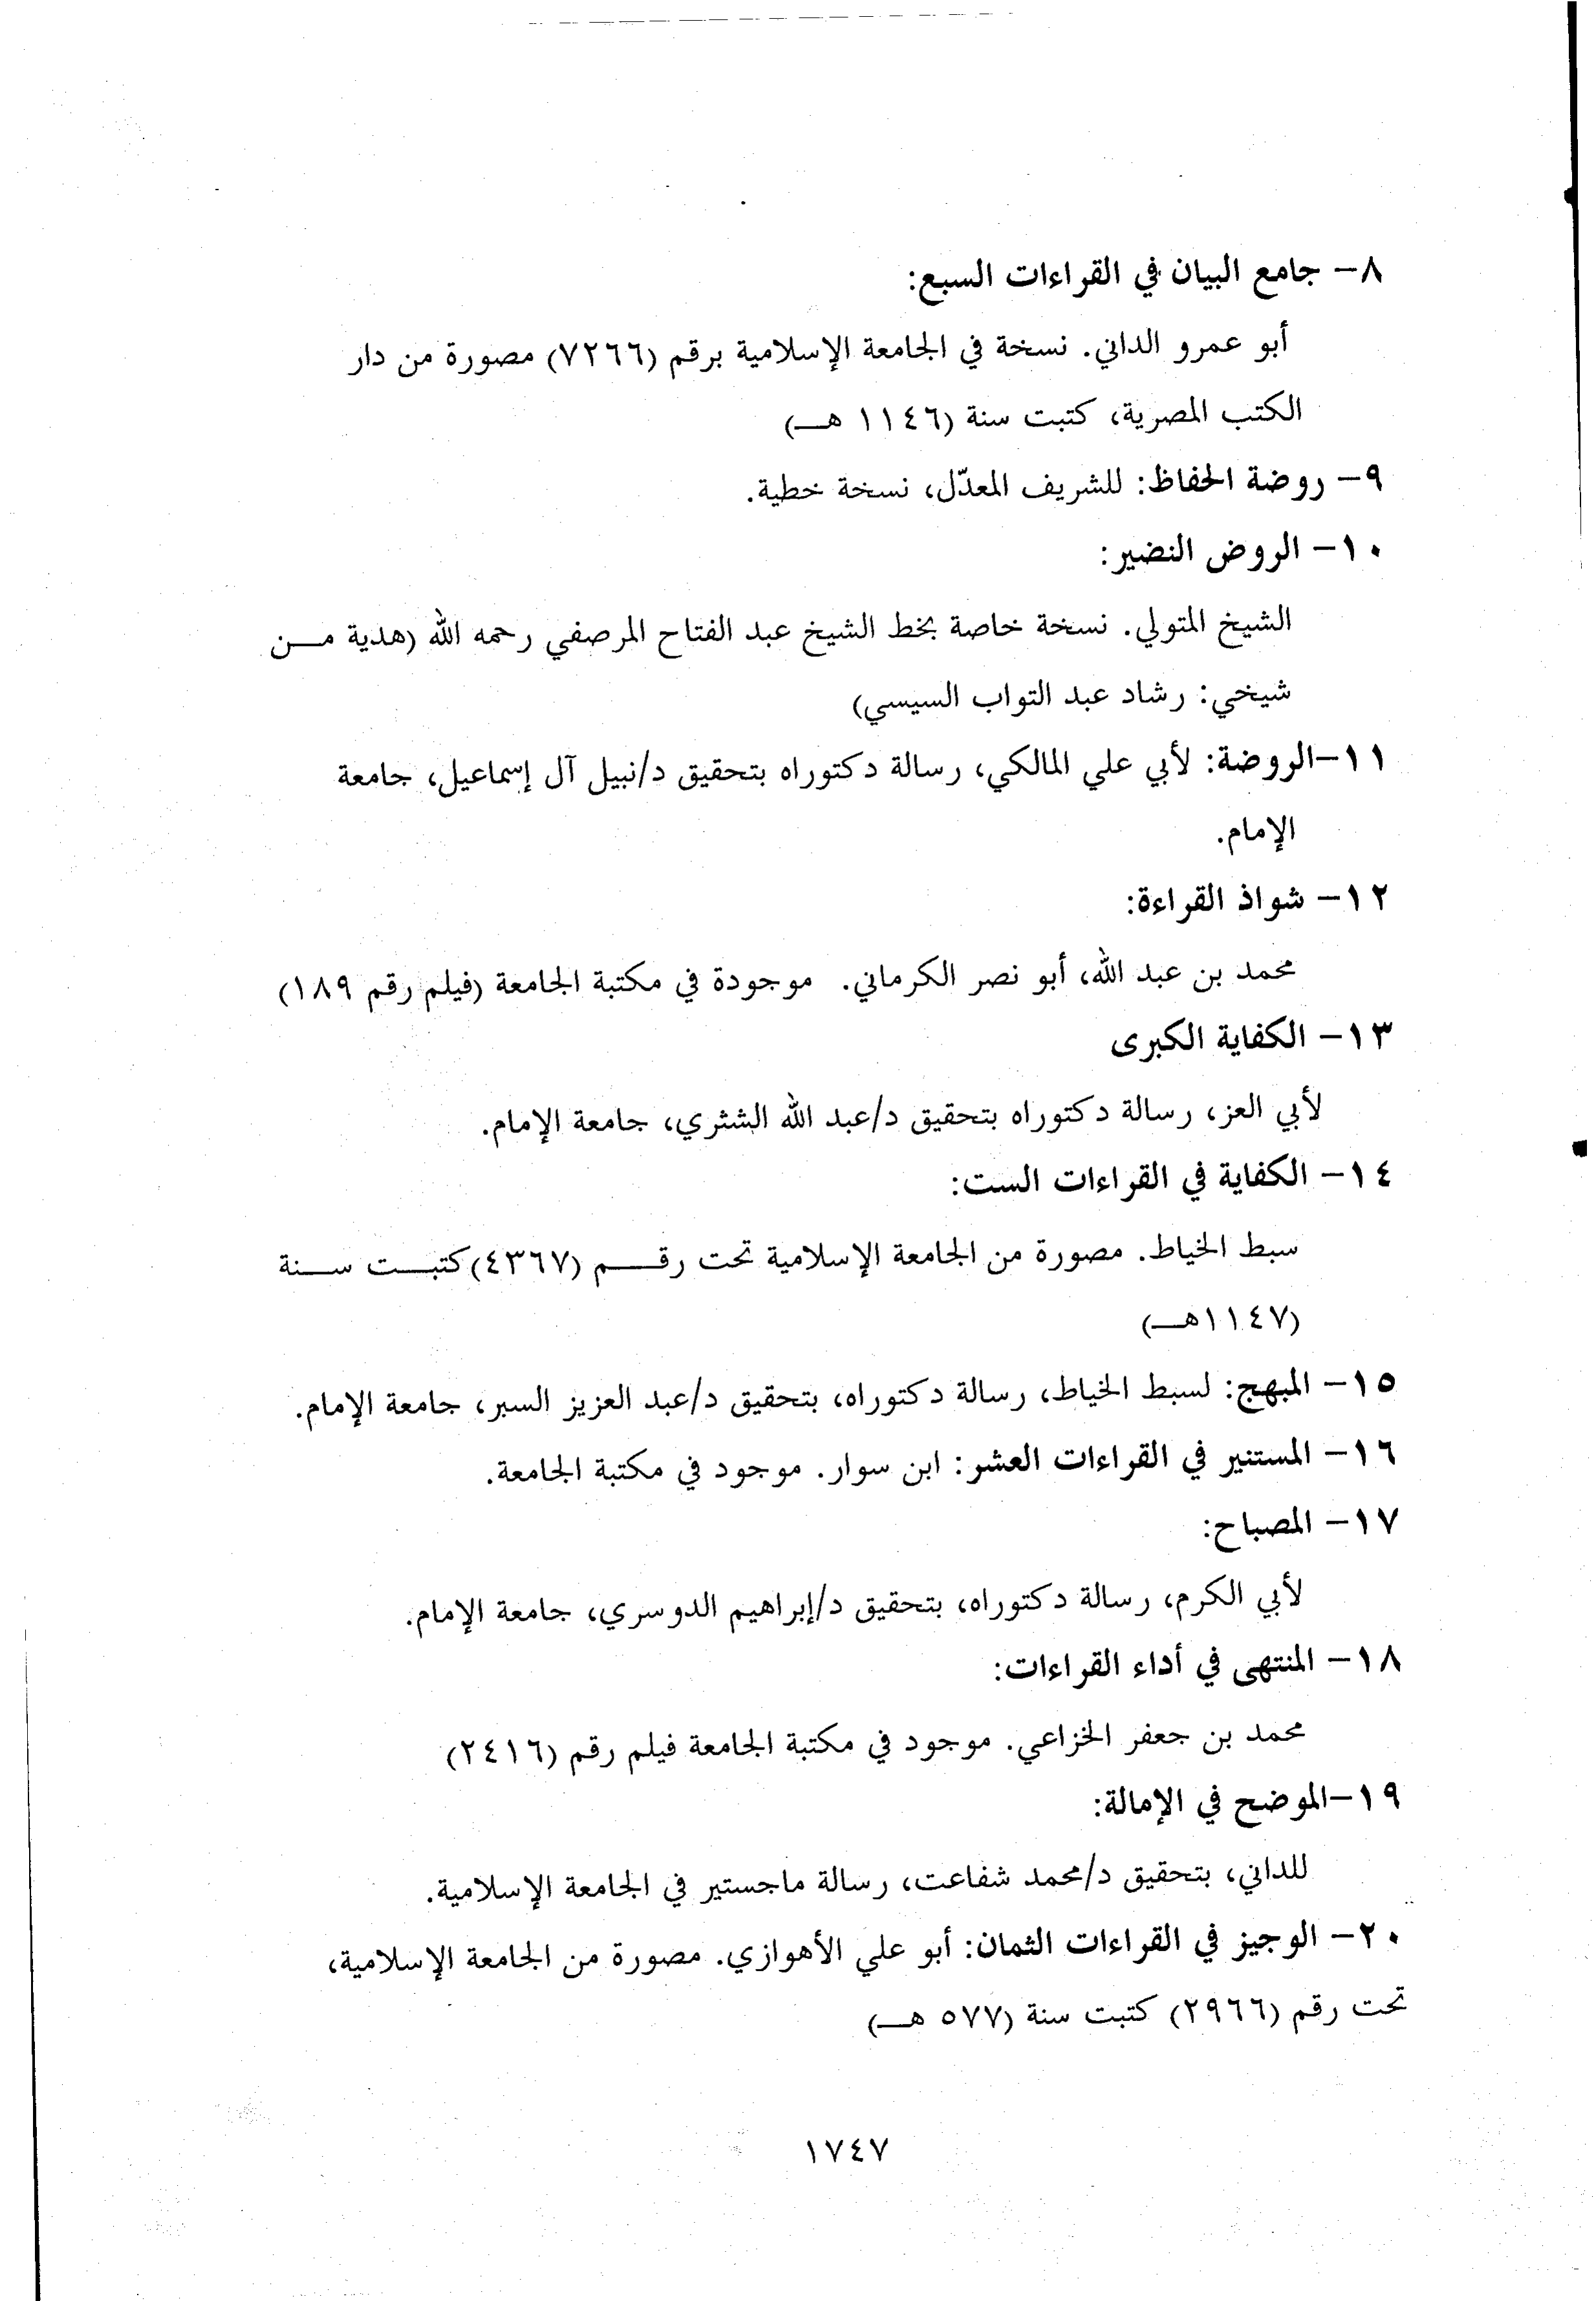 ٨- جامع البيان في القراءات السبع:
أبو عمرو الداني. نسخة في الجامعة الإسلامية برقم (٧٢٦٦) مصورة من دار
الكتب المصرية، كتبت سنة (١١٤٦ هـ)
٩- روضة الحفاظ: للشريف المعدّل، نسخة خطية.
١٠- الروض النضير:
الشيخ المتولي. نسخة خاصة بخط الشيخ عبد الفتاح المرصفي رحمه الله (هدية من
شيخي: رشاد عبد التواب السيسي)
١١-الروضة: لأبي علي المالكي، رسالة دكتوراه بتحقيق د/نبيل آل إسماعيل، جامعة
الإمام.
١٢- شواذ القراءة:
محمد بن عبد الله، أبو نصر الكرماني. موجودة في مكتبة الجامعة (فيلم رقم ١٨٩)
١٣- الكفاية الكبرى
لأبي العز، رسالة دكتوراه بتحقيق د/عبد الله الشثري، جامعة الإمام.
١٤- الكفاية في القراءات الست:
سبط الخياط. مصورة من الجامعة الإسلامية تحت رقم (٤٣٦٧)كتبت سنة
(١١٤٧هـ)
١٥- المبهج: لسبط الخياط، رسالة دكتوراه، بتحقيق د/عبد العزيز السبر، جامعة الإمام.
١٦- المستنير في القراءات العشر: ابن سوار. موجود في مكتبة الجامعة.
١٧- المصباح:
لأبي الكرم، رسالة دكتوراه، بتحقيق د/إبراهيم الدوسري، جامعة الإمام.
١٨- المنتهى في أداء القراءات:
محمد بن جعفر الخزاعي. موجود في مكتبة الجامعة فيلم رقم (٢٤١٦)
١٩-الموضح في الإمالة:
للداني، بتحقيق د/محمد شفاعت، رسالة ماجستير في الجامعة الإسلامية.
٢٠- الوجيز في القراءات الثمان: أبو علي الأهوازي. مصورة من الجامعة الإسلامية،
تحت رقم (٢٩٦٦) كتبت سنة (٥٧٧ هـ)
١٧٤٧